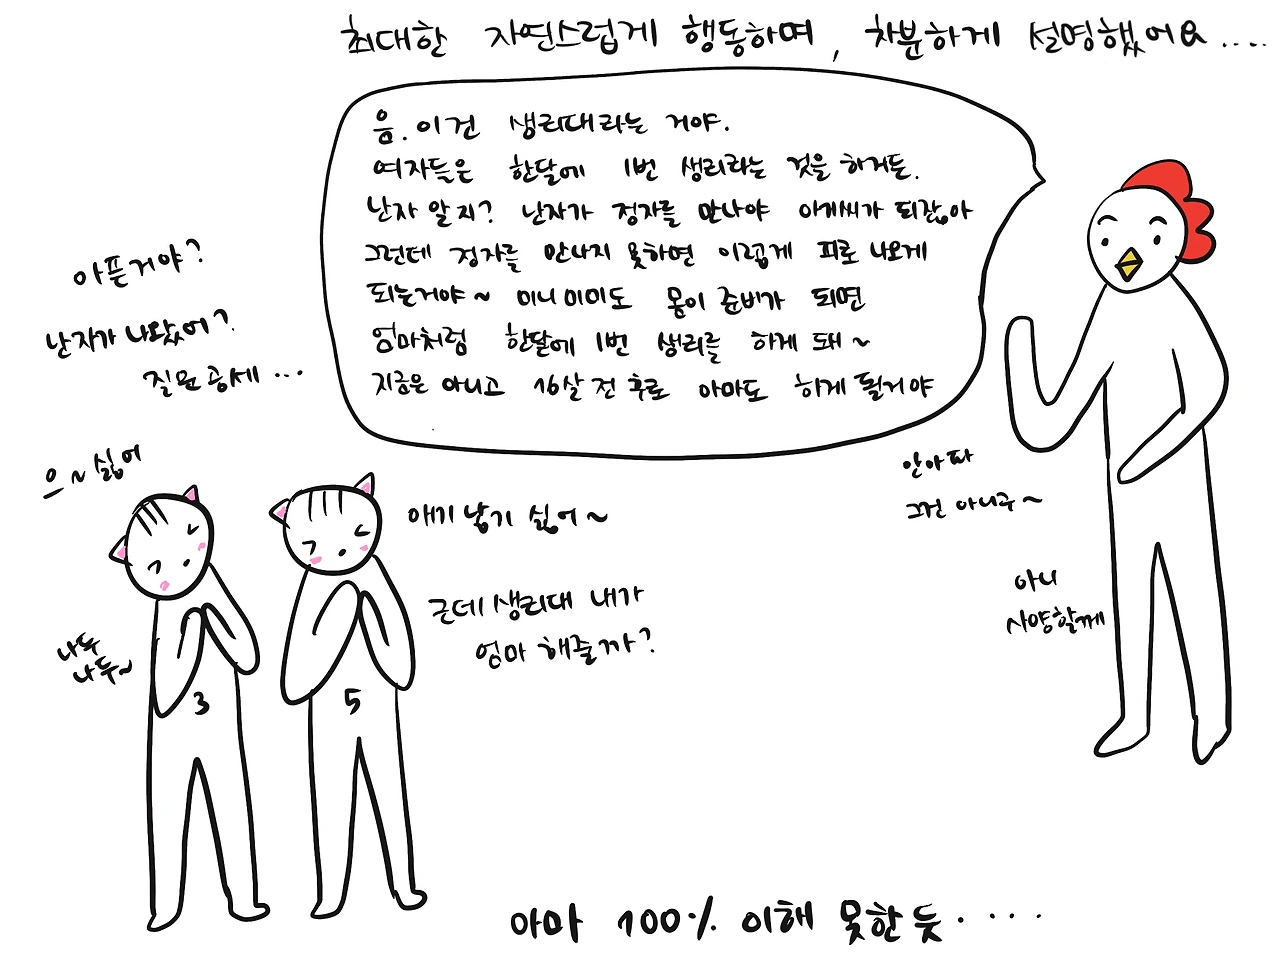 최대한 자연스럽게 행동하며, 차분하게 설명했어요.....
음. 이건 생리대라는 거야.
여자들은 한달에 1번 생리라는 것을 하거든.
난자 알지? 난자가 정자를 만나야 아게씨가 되잖아
그런데 정자를 만나지 못하면 이렇게 피로 나오게
되는거야~ 미니미미도 몸이 준비가 되면
엄마처럼 한달에 1번 생리를 하게 돼~
지금은 아니고 16살 전후로 아마도 하게 될거야
아픈거야?
난자가 나왔어?
질문공세...
으~싫어
애기 낳기 싫어~
근데 생리대 내가
엄마 해줄까?
나두
나두~
3
5
안아파
그건 아니구~
아니
사양할께
아마 100% 이해 못한 듯.....